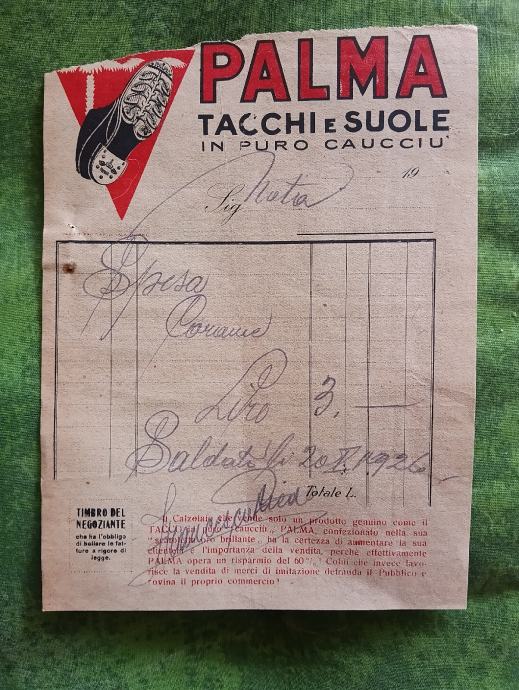 PALMA
TACCHI E SUOLE
IN PURO CAUCCIÙ
19
Sig Nota
Spesa
Corame
Lire 3. —
Saldato li 20 X 1926
Totale L.
TIMBRO DEL
NEGOZIANTE
che ha l'obbligo
di bollare le fat-
ture a rigore di
legge.
Il Calzolaio che vende solo un prodotto genuino come il
TACCO di puro caucciù „ PALMA, confezionato nella sua
"scatola oro brillante„ ha la certezza di aumentare la sua
clientela e l'importanza della vendita, perchè effettivamente
PALMA opera un risparmio del 60%! Colui che invece favo-
risce la vendita di merci di imitazione defrauda il Pubblico e
rovina il proprio commercio!